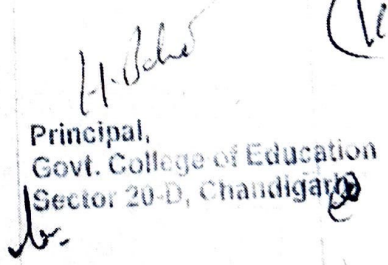 Principal,
Govt. College of Education
Sector 20-D, Chandigarh